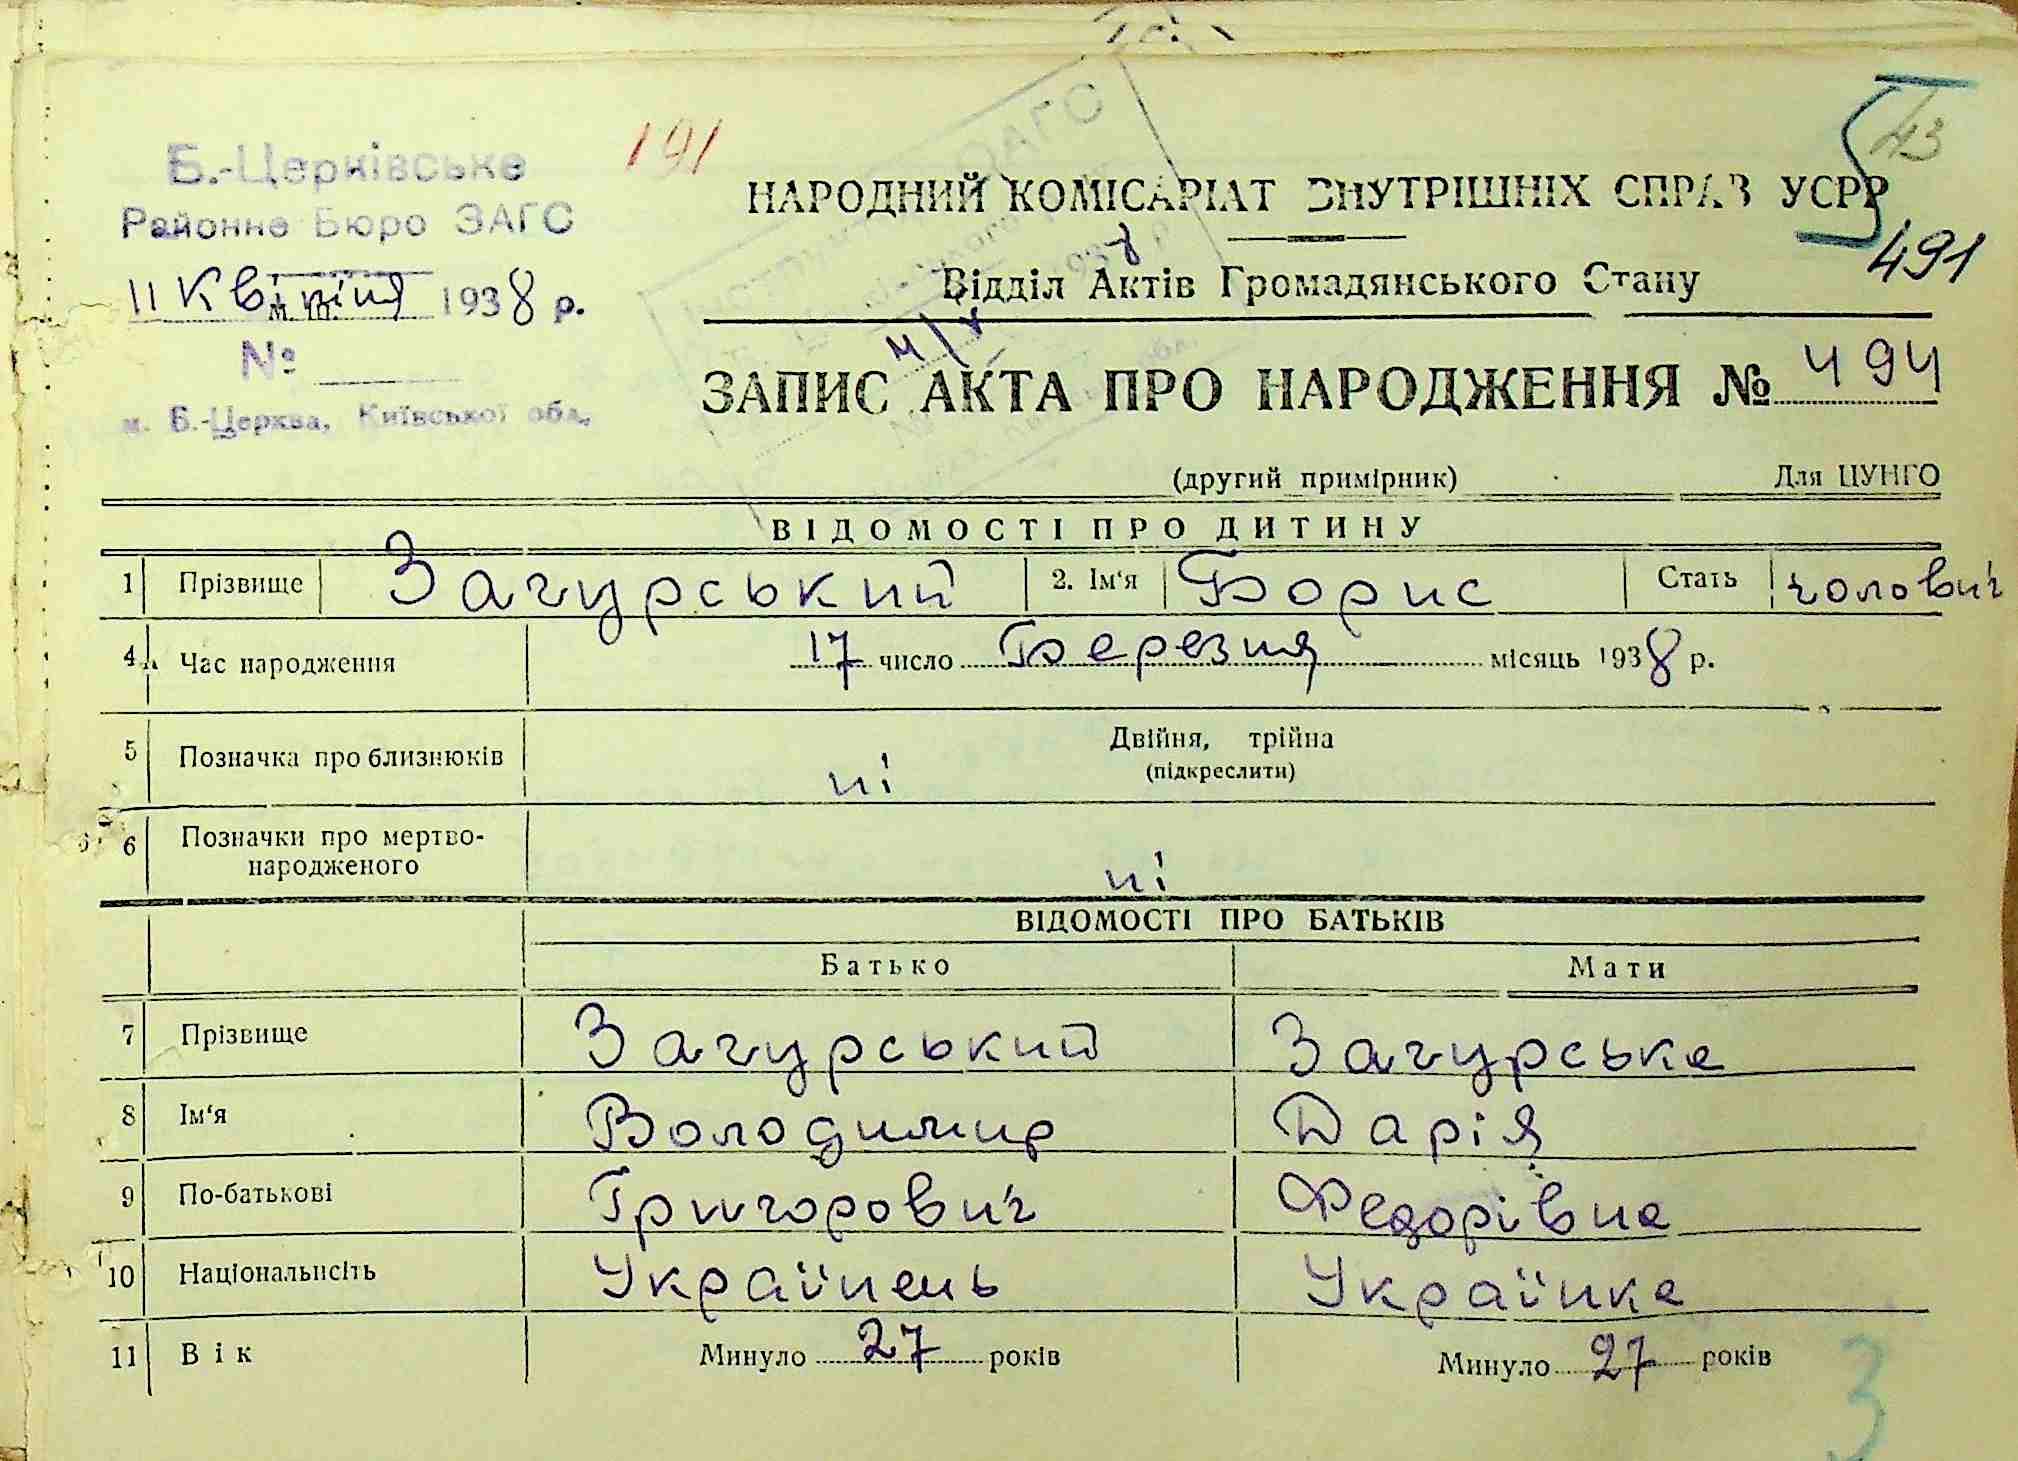 Б.-Церківське
Районне Бюро ЗАГС
11 Квітня 1938 р.
№
м. Б.-Церква, Київської обл.
191
43
НАРОДНИЙ КОМІСАРІАТ ВНУТРІШНІХ СПРАВ УСРР
491
Відділ Актів Громадянського Стану
ЗАПИС АКТА ПРО НАРОДЖЕННЯ № 494
(другий примірник) Для ЦУНГО
ВІДОМОСТІ ПРО ДИТИНУ
1 Прізвище Загурський 2. Ім‘я Борис Стать чолович
4 Час народження 17 число Березня місяць 1938 р.
5 Позначка про близнюків ні Двійня, трійна
(підкреслити)
6 Позначки про мертво-
народженого ні
ВІДОМОСТІ ПРО БАТЬКІВ
Батько Мати
7 Прізвище Загурський Загурська
8 Ім‘я Володимир Дарія
9 По-батькові Григорович Федорівна
10 Національнсіть Українець Українка
11 Вік Минуло 27 років Минуло 27 років
3